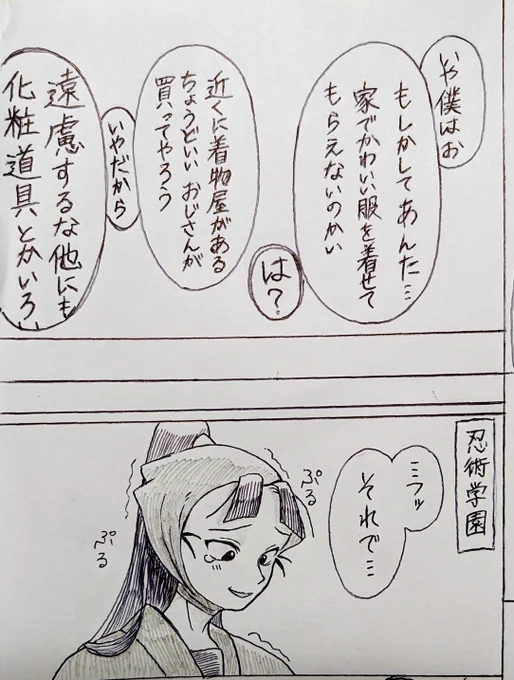 いや僕はお
もしかしてあんた…
家でかわいい服を着せて
もらえないのかい
は?
近くに着物屋がある
ちょうどいい おじさんが
買ってやろう
いやだから
遠慮するな他にも
化粧道具とかいろ
忍術学園
ミフッ
それで…
ぷる
ぷる